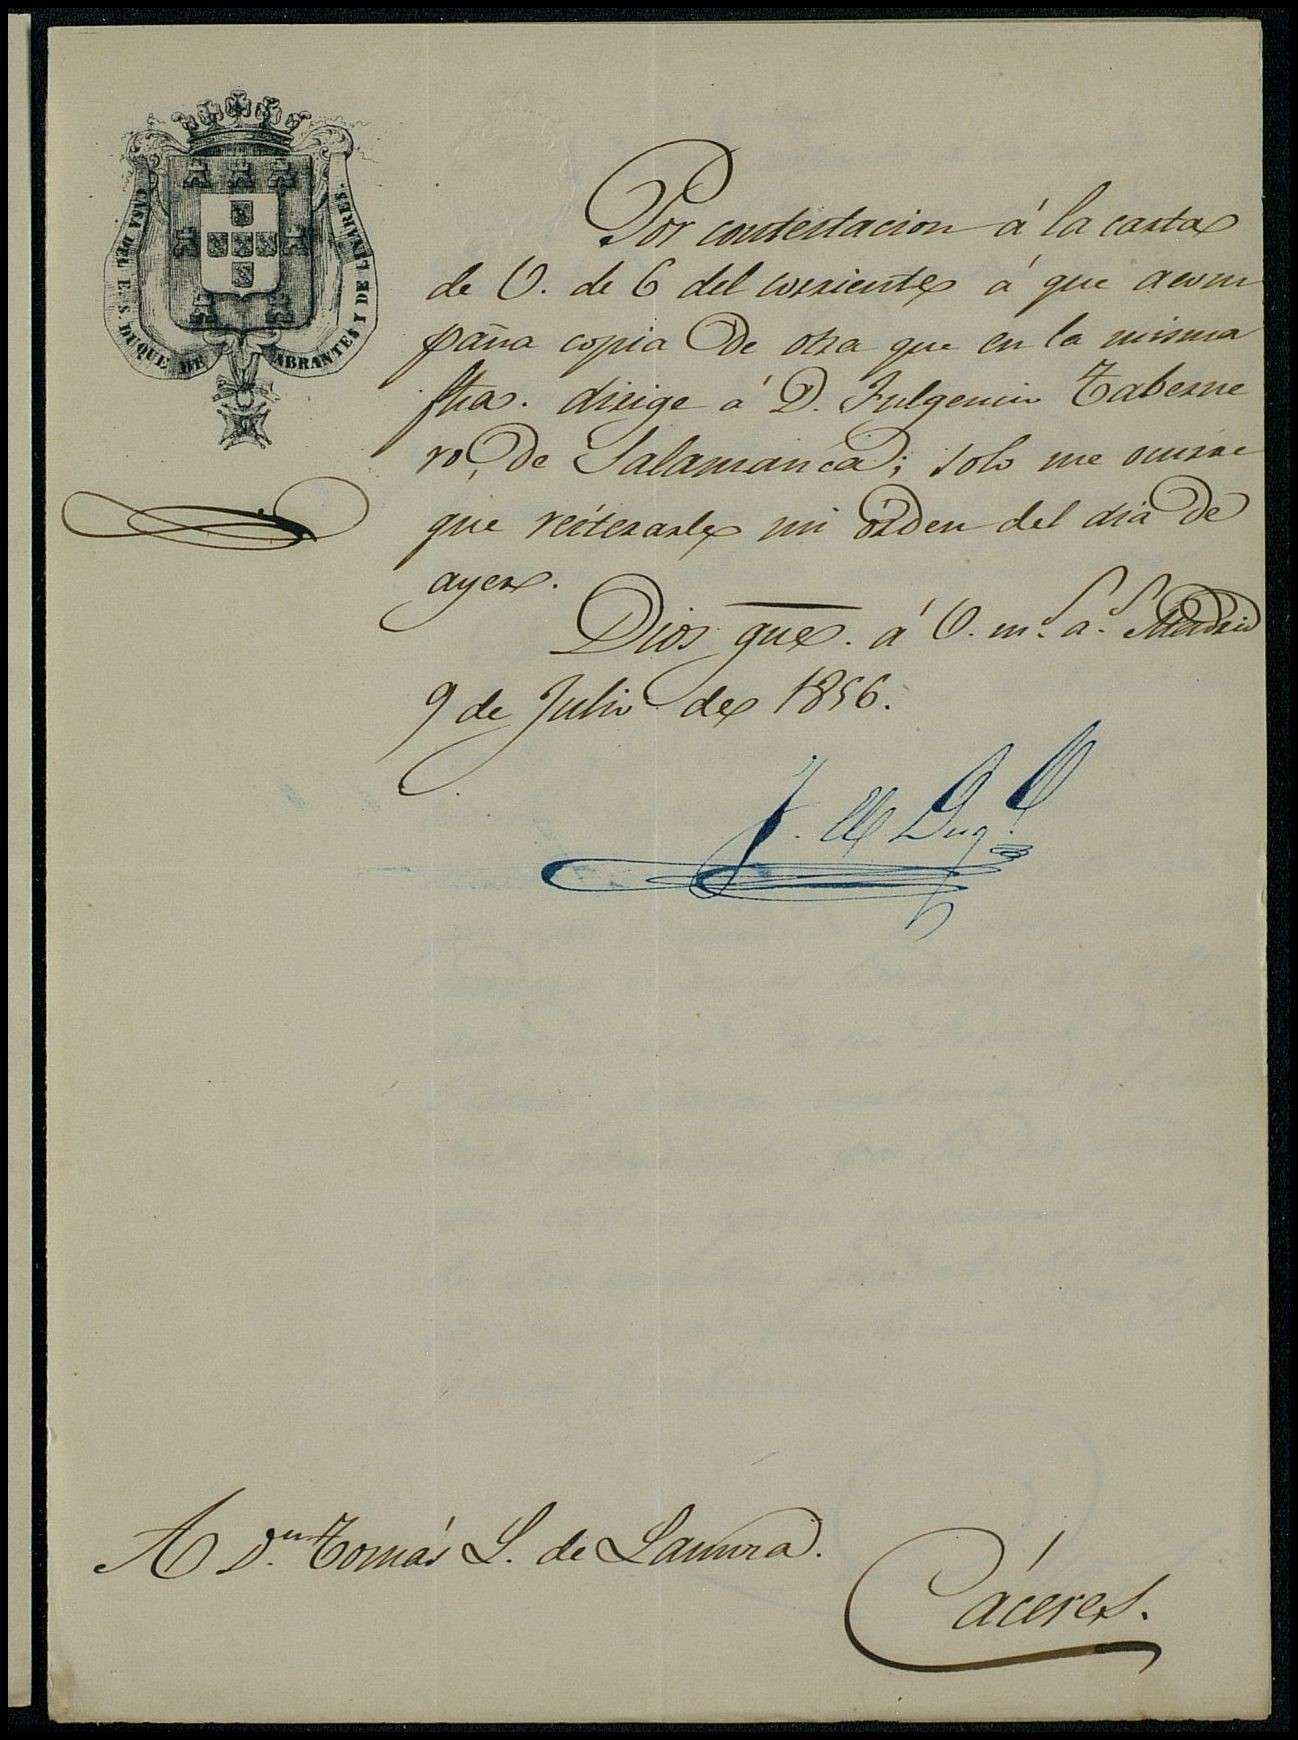 CASA DEL E. S. DUQUE DE ABRANTES Y DE LINARES.
Por contestacion á la carta
de V. de 6 del corriente á que acom
paña copia de otra que en la misma
fha. dirige á D. Fulgencio Taberne
ro, de Salamanca; solo me ocurre
que reiterarle mi órden del dia de
ayer.
Dios gue. á V. ms. as. Madrid
9 de Julio de 1856.
El Duq.
A Dn. Tomás L. de
Cáceres.